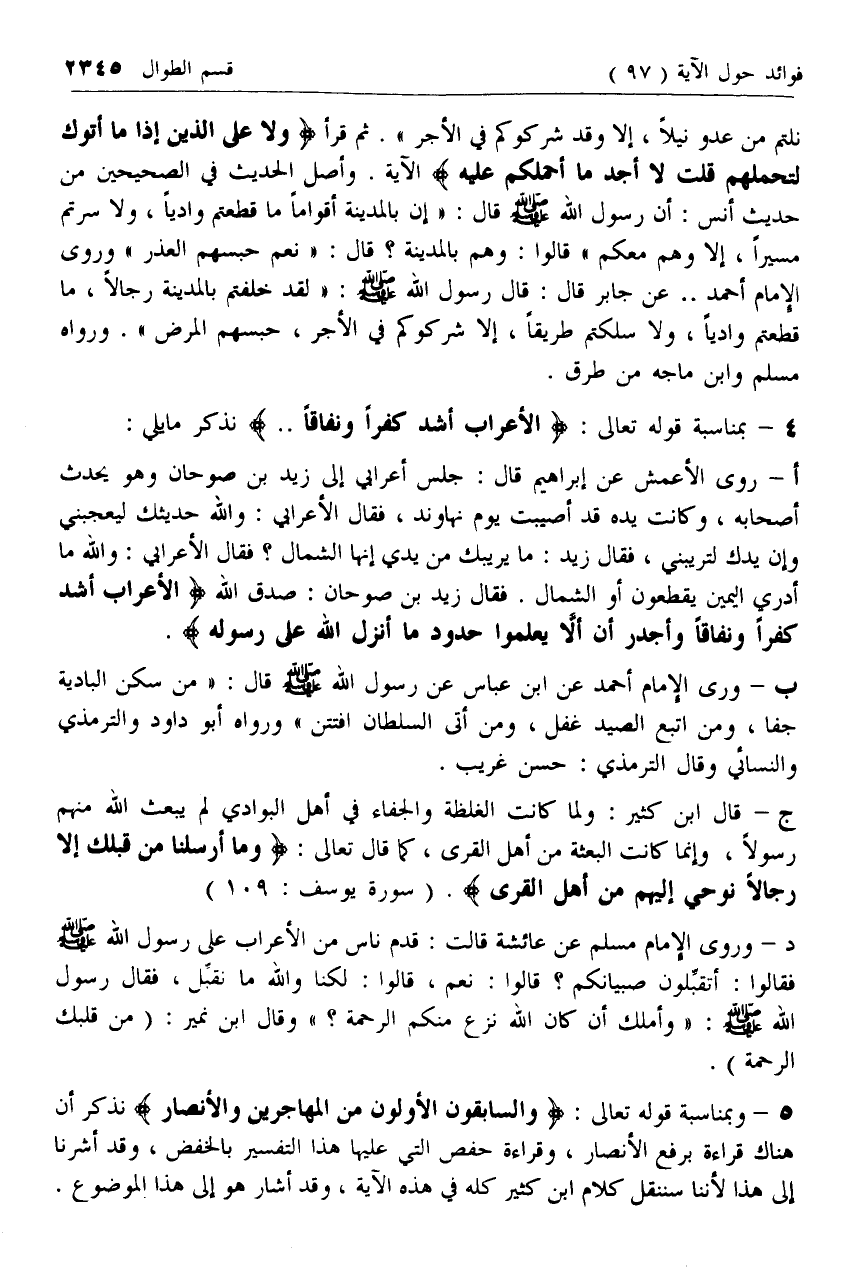 فوائد حول الآية ( ٩٧ ) قسم الطوال ٢٣٤٥
نلتم من عدو نيلاً ، إلا وقد شركوكم في الأجر » . ثم قرأ ﴿ ولا على الذين إذا ما أتوك
لتحملهم قلت لا أجد ما أحملكم عليه ﴾ الآية . وأصل الحديث في الصحيحين من
حديث أنس : أن رسول الله ﷺ قال : « إن بالمدينة أقواماً ما قطعتم وادياً ، ولا سرتم
مسيراً ، إلا وهم معكم » قالوا : وهم بالمدينة ؟ قال : « نعم حبسهم العذر » وروى
الإمام أحمد .. عن جابر قال : قال رسول الله ﷺ : « لقد خلفتم بالمدينة رجالاً ، ما
قطعتم وادياً ، ولا سلكتم طريقاً ، إلا شركوكم في الأجر ، حبسهم المرض » . ورواه
مسلم وابن ماجه من طرق .
٤ – بمناسبة قوله تعالى : ﴿ الأعراب أشد كفراً ونفاقاً .. ﴾ نذكر مايلي :
أ – روى الأعمش عن إبراهيم قال : جلس أعرابي إلى زيد بن صوحان وهو يحدث
أصحابه ، وكانت يده قد أصيبت يوم نهاوند ، فقال الأعرابي : والله حديثك ليعجبني
وإن يدك لتريبني ، فقال زيد : ما يريبك من يدي إنها الشمال ؟ فقال الأعرابي : والله ما
أدري اليمين يقطعون أو الشمال . فقال زيد بن صوحان : صدق الله ﴿ الأعراب أشد
كفراً ونفاقاً وأجدر أن ألَّا يعلموا حدود ما أنزل الله على رسوله ﴾ .
ب – ورى الإمام أحمد عن ابن عباس عن رسول الله ﷺ قال : « من سكن البادية
جفا ، ومن اتبع الصيد غفل ، ومن أتى السلطان افتتن » ورواه أبو داود والترمذي
والنسائي وقال الترمذي : حسن غريب .
ج – قال ابن كثير : ولما كانت الغلظة والجفاء في أهل البوادي لم يبعث الله منهم
رسولاً ، وإنما كانت البعثة من أهل القرى ، كما قال تعالى : ﴿ وما أرسلنا من قبلك إلا
رجالاً نوحي إليهم من أهل القرى ﴾ . ( سورة يوسف : ١٠٩ )
د – وروى الإمام مسلم عن عائشة قالت : قدم ناس من الأعراب على رسول الله ﷺ
فقالوا : أتقبِّلون صبيانكم ؟ قالوا : نعم ، قالوا : لكنا والله ما نقبِّل ، فقال رسول
الله ﷺ : « وأملك أن كان الله نزع منكم الرحمة ؟ » وقال ابن نمير : ( من قلبك
الرحمة ) .
٥ – وبمناسبة قوله تعالى : ﴿ والسابقون الأولون من المهاجرين والأنصار ﴾ نذكر أن
هناك قراءة برفع الأنصار ، وقراءة حفص التي عليها هذا التفسير بالخفض ، وقد أشرنا
إلى هذا لأننا سننقل كلام ابن كثير كله في هذه الآية ، وقد أشار هو إلى هذا الموضوع .